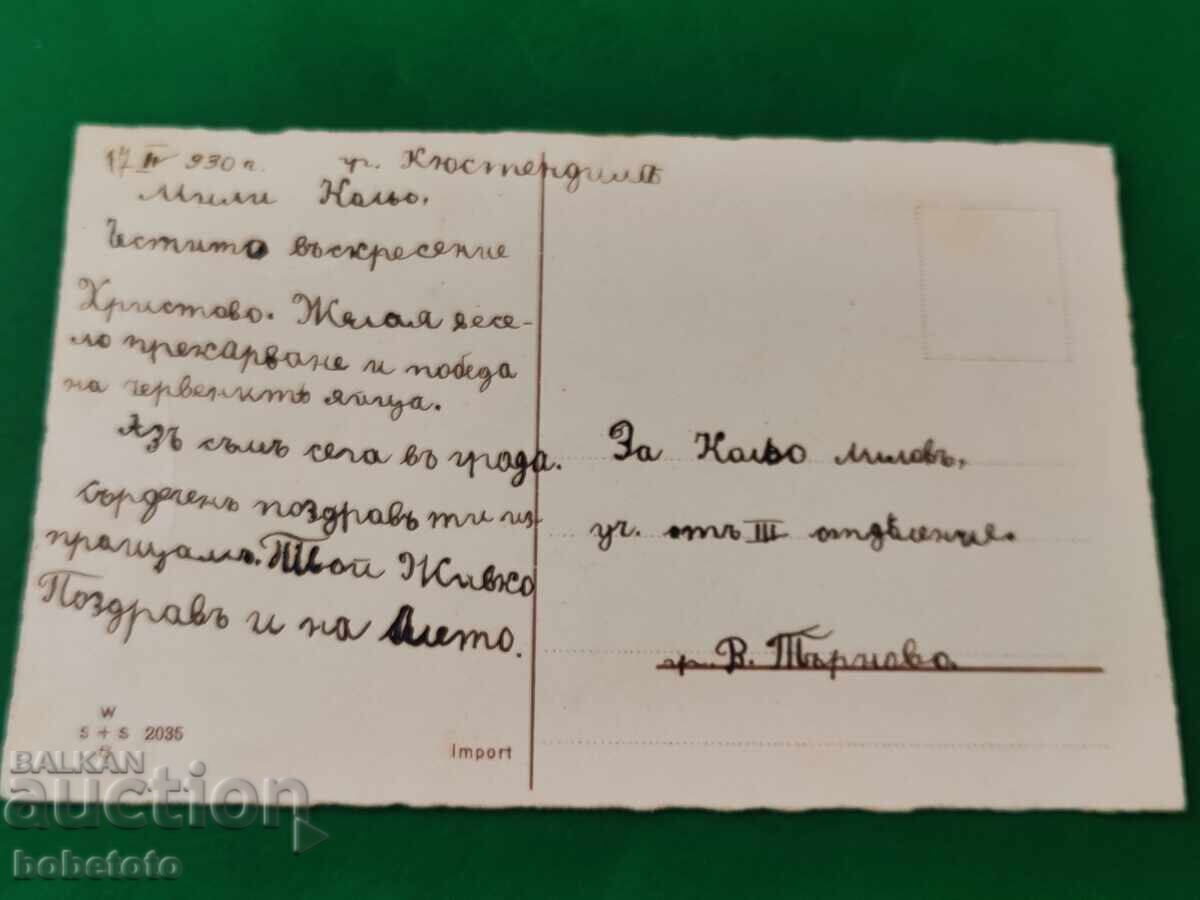 17 IV 930 г. гр. Кюстендилъ
Мили Кольо.
Честито въскресение
Христово. Желая весе-
ло прекарване и победа
на червенитѣ яйца.
Азъ съмъ сега въ града.
Сърдеченъ поздравъ ти из-
пращамъ. Твой Живко
Поздравъ и на
За Кольо Миловъ,
уч. отъ III отдѣление.
гр. В. Търново
W
S + S 2035
Import
BALKAN
auction
bobetoto